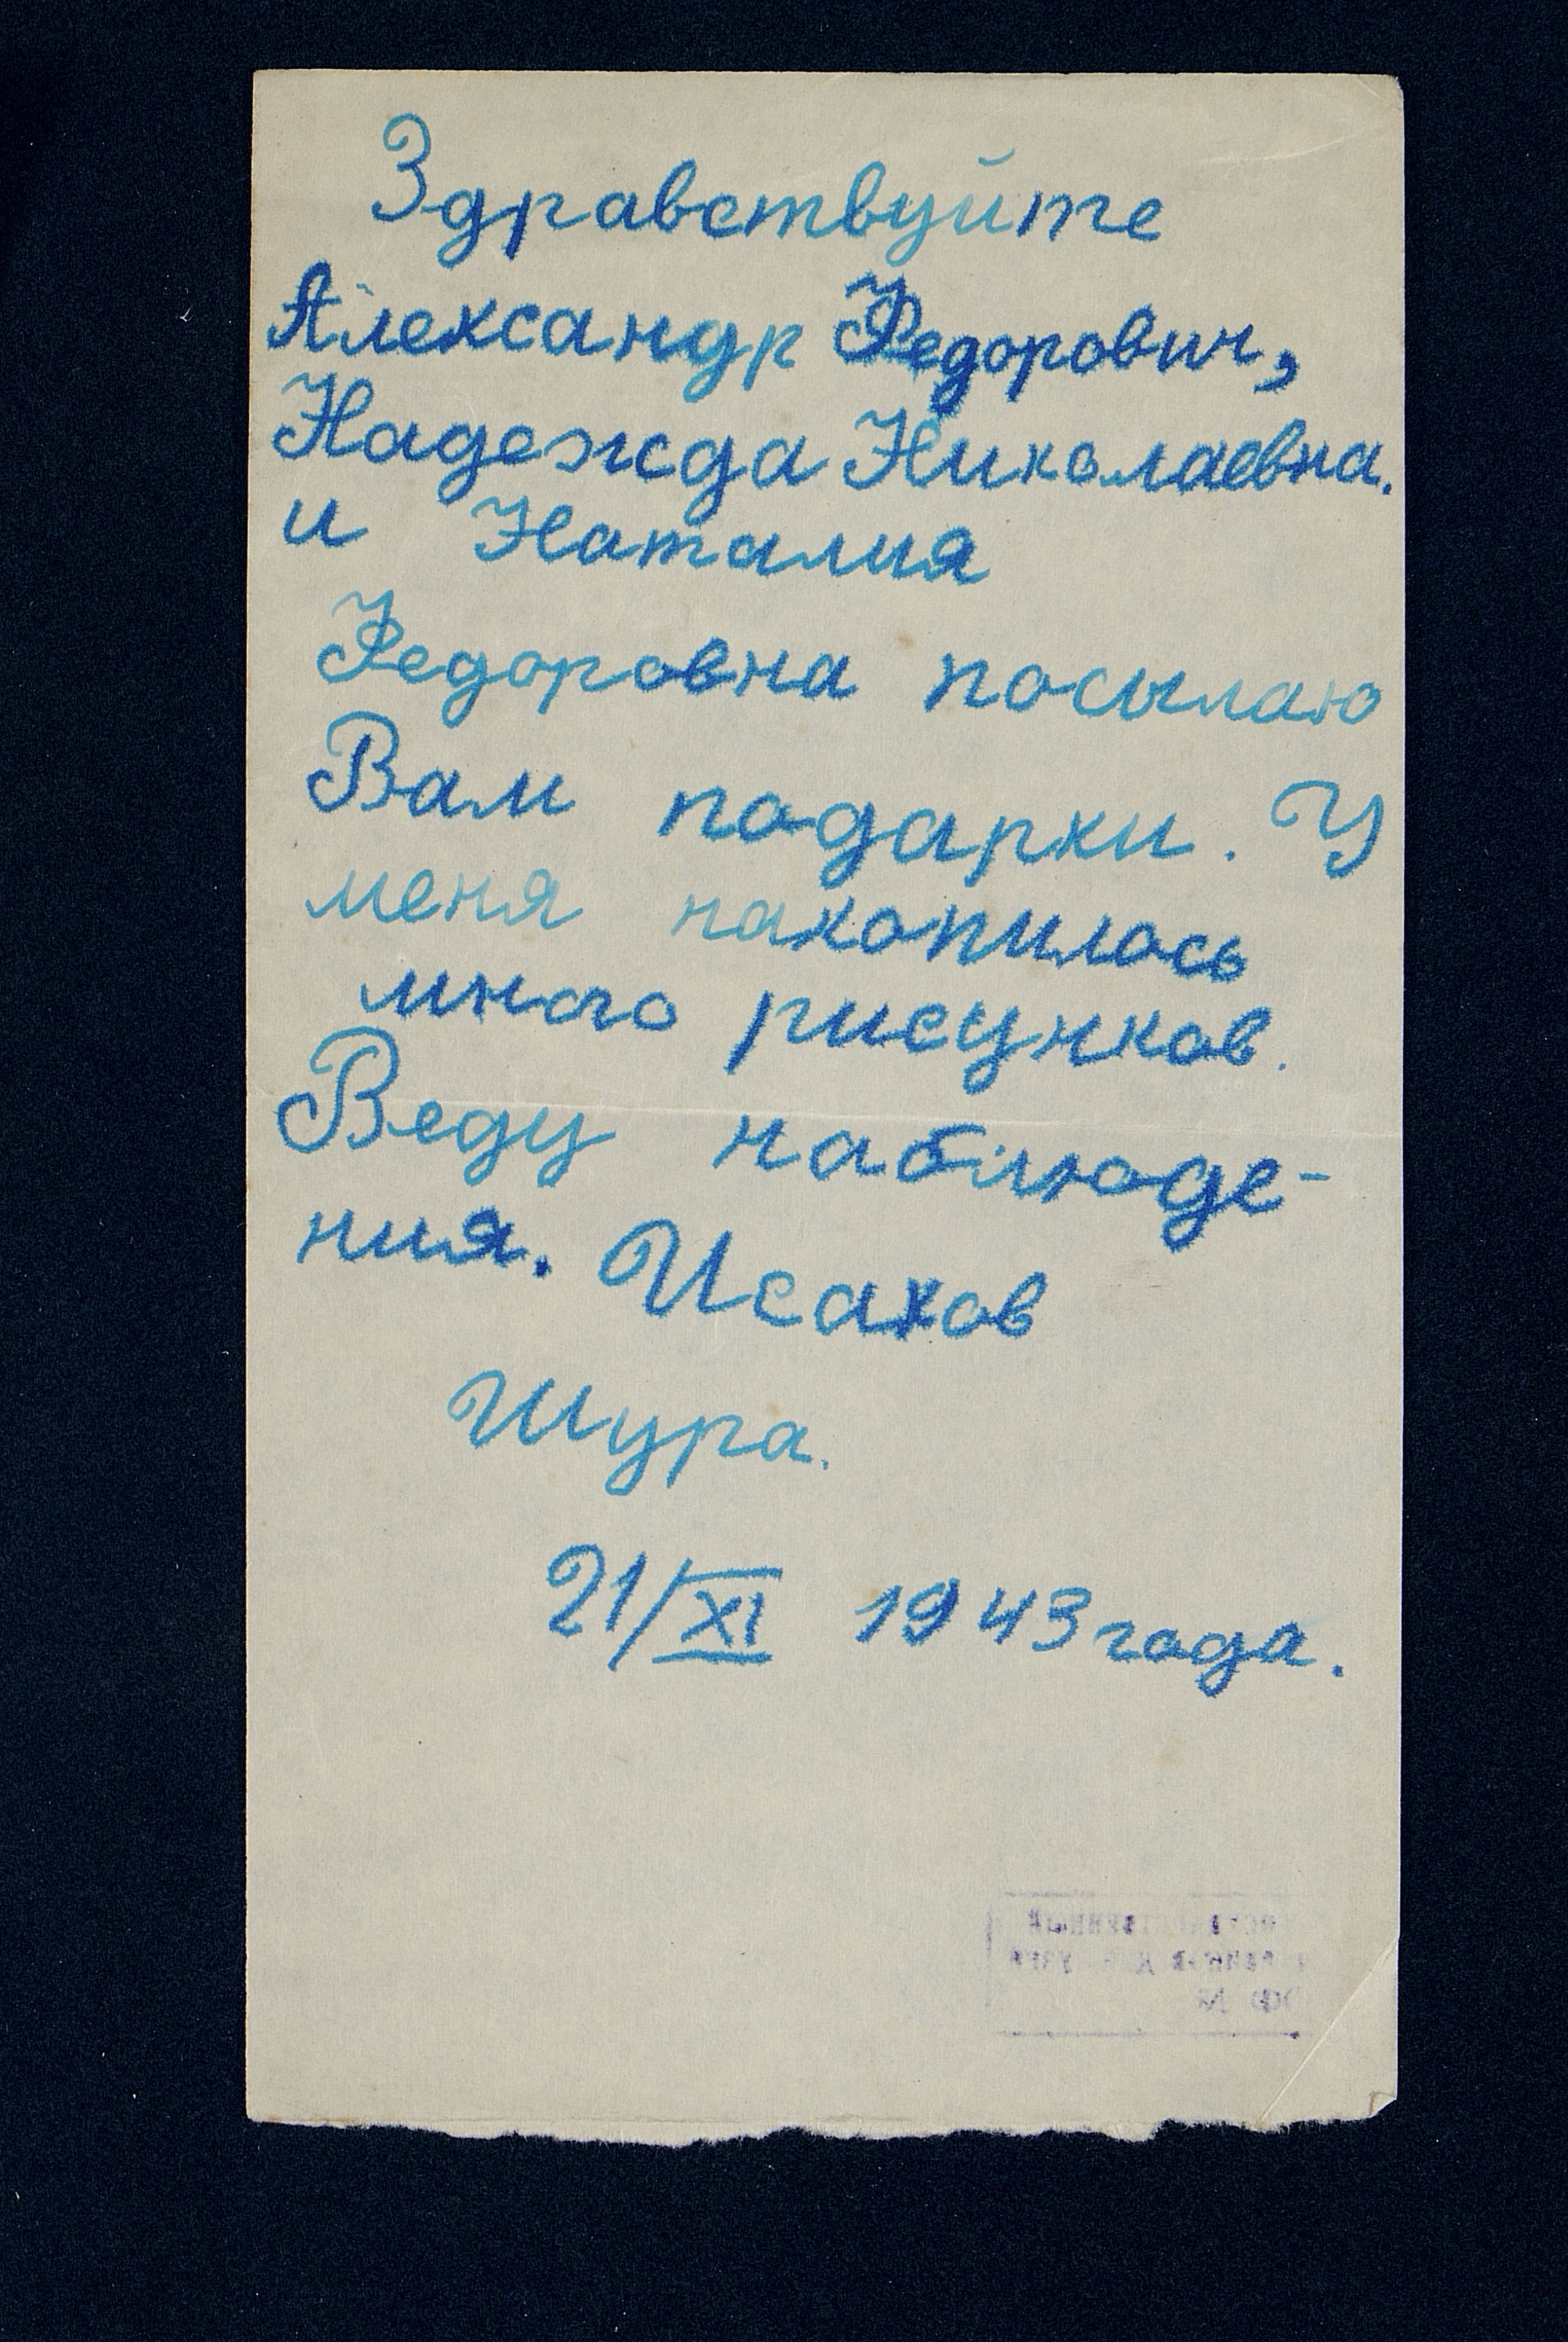 Здравствуйте
Александр Федорович,
Надежда Николаевна.
и Наталия
Федоровна посылаю
Вам подарки. У
меня накопилось
много рисунков.
Веду наблюде-
ния. Исаков
Шура.
21/XI 1943 года.